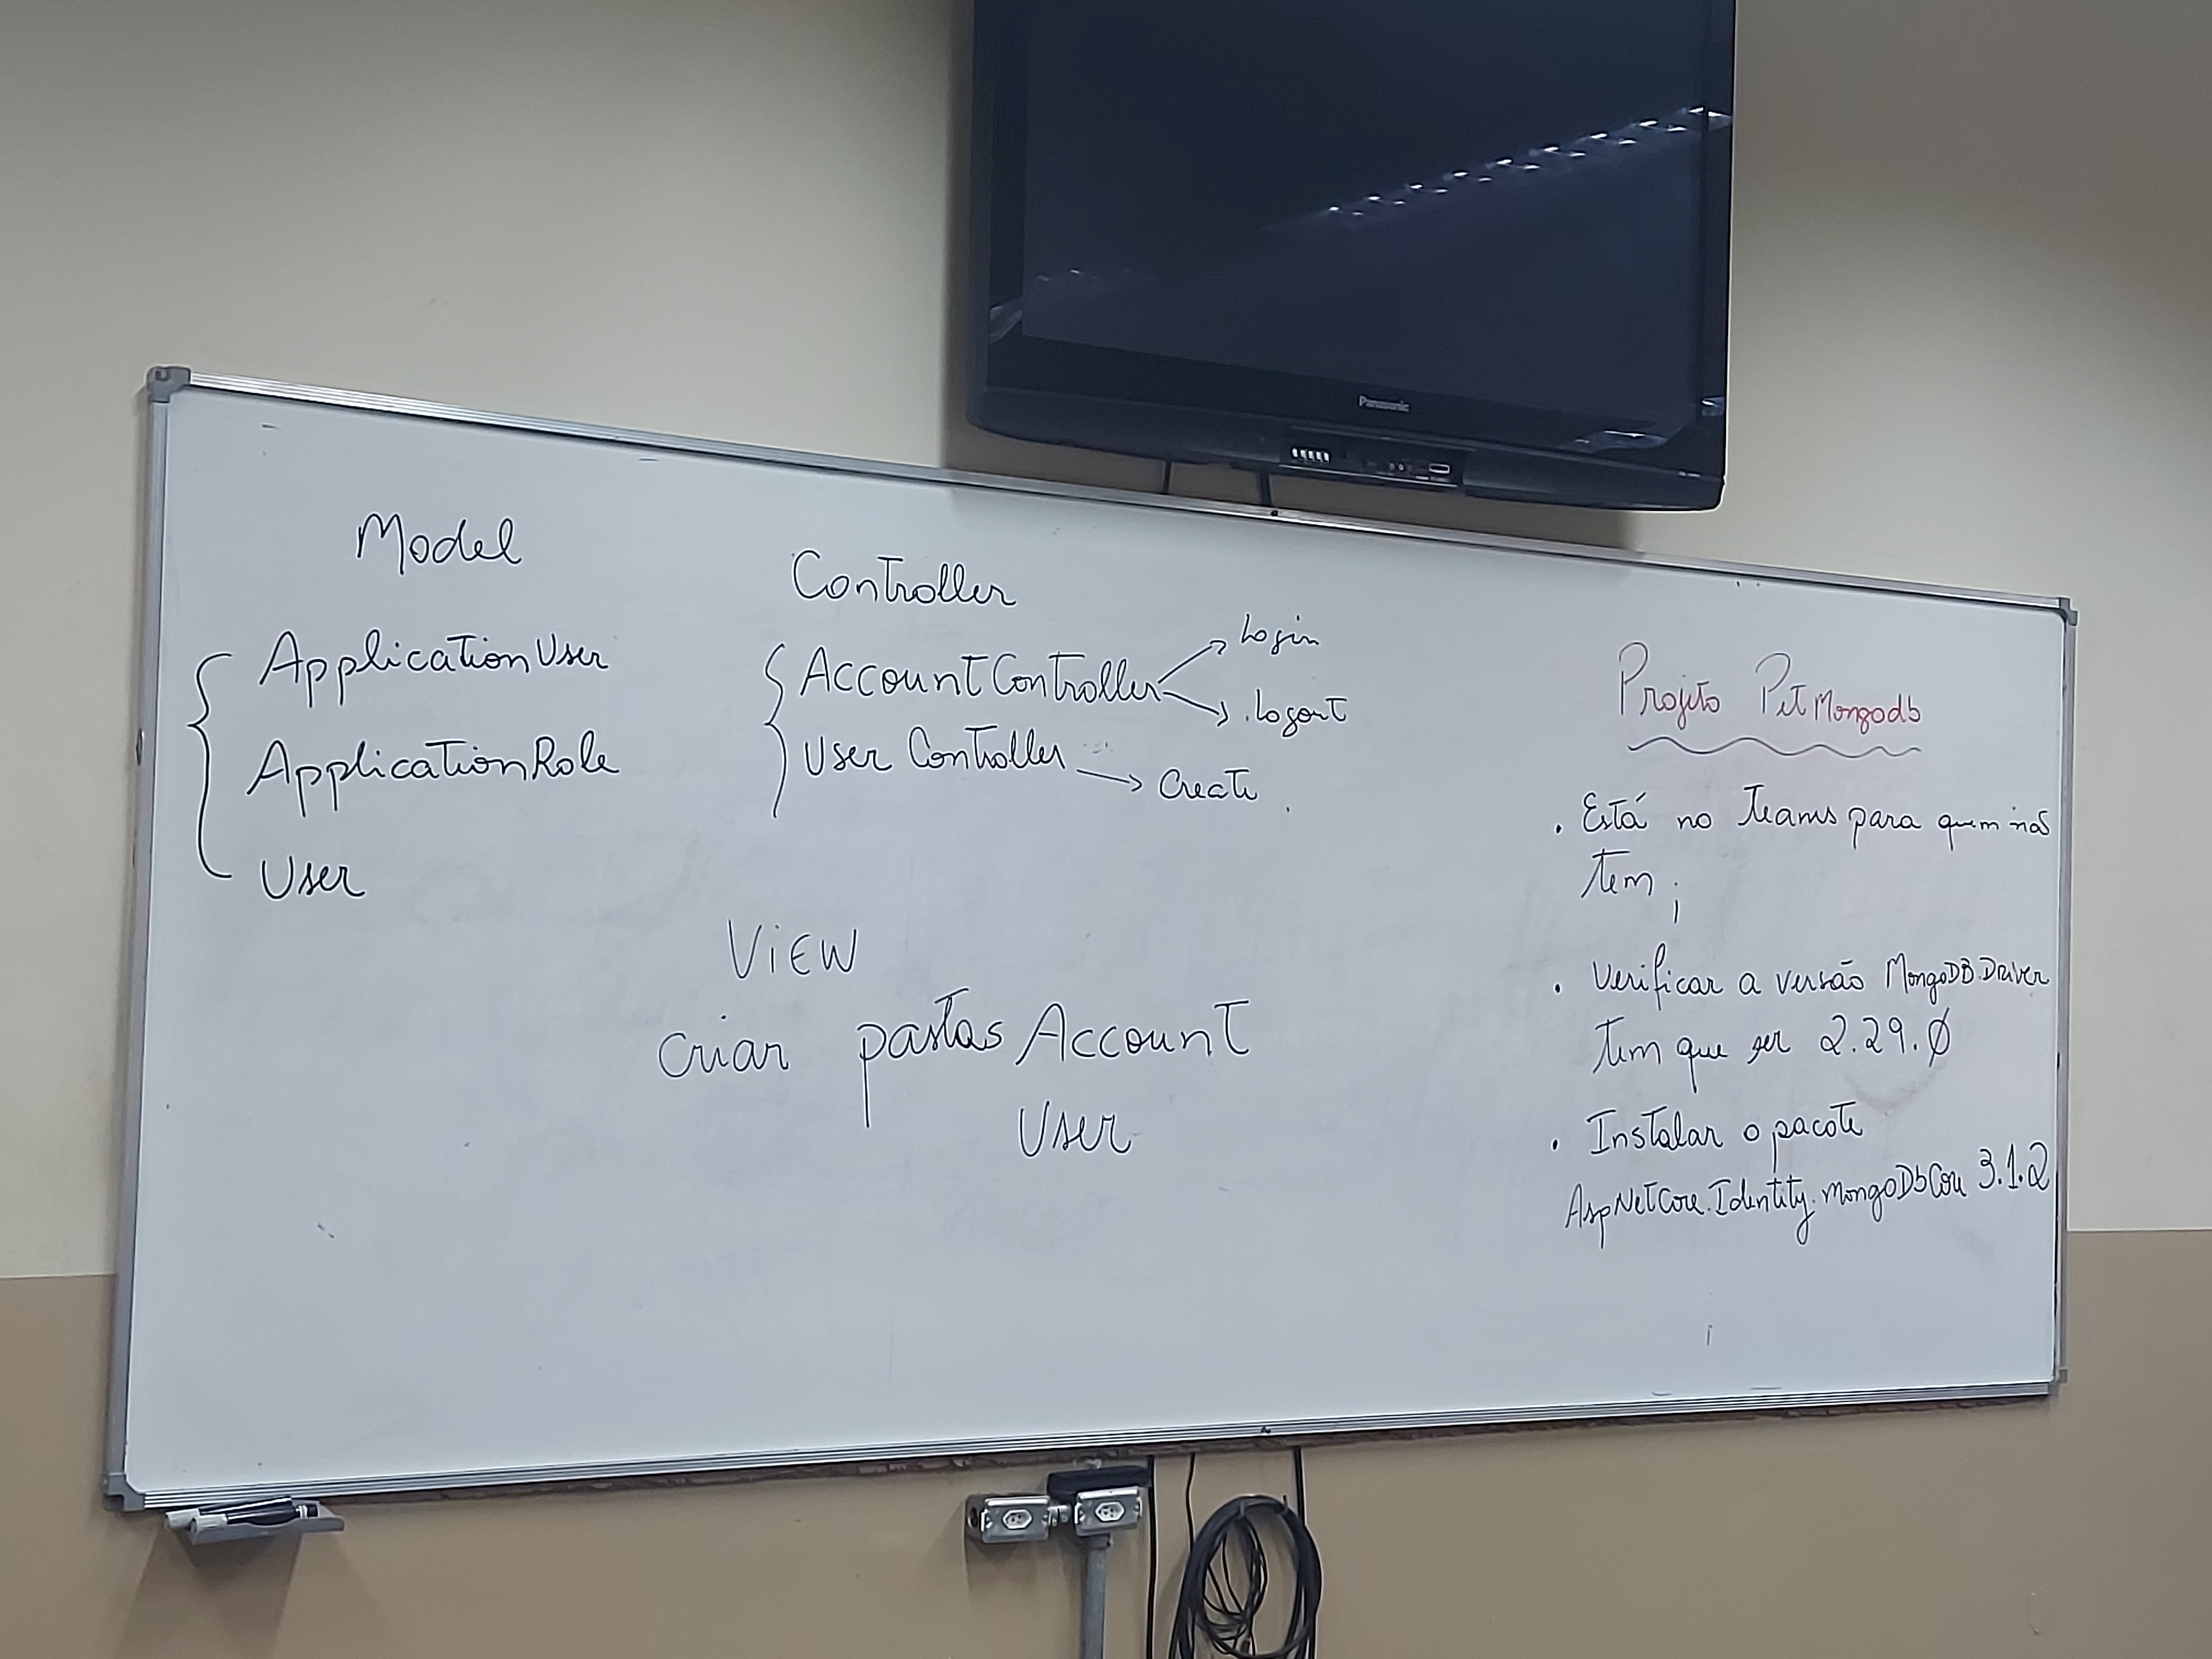 Panasonic
Model
ApplicationUser
ApplicationRole
User
Controller
AccountController
Login
.Logout
User Controller
Create
VIEW
criar pastas Account
User
Projeto PetMongodb
. Está no Teams para quem não
tem ;
. Verificar a versão MongoDB.Driver
tem que ser 2.29.0
. Instalar o pacote
AspNetCore.Identity.MongoDbCore 3.1.2